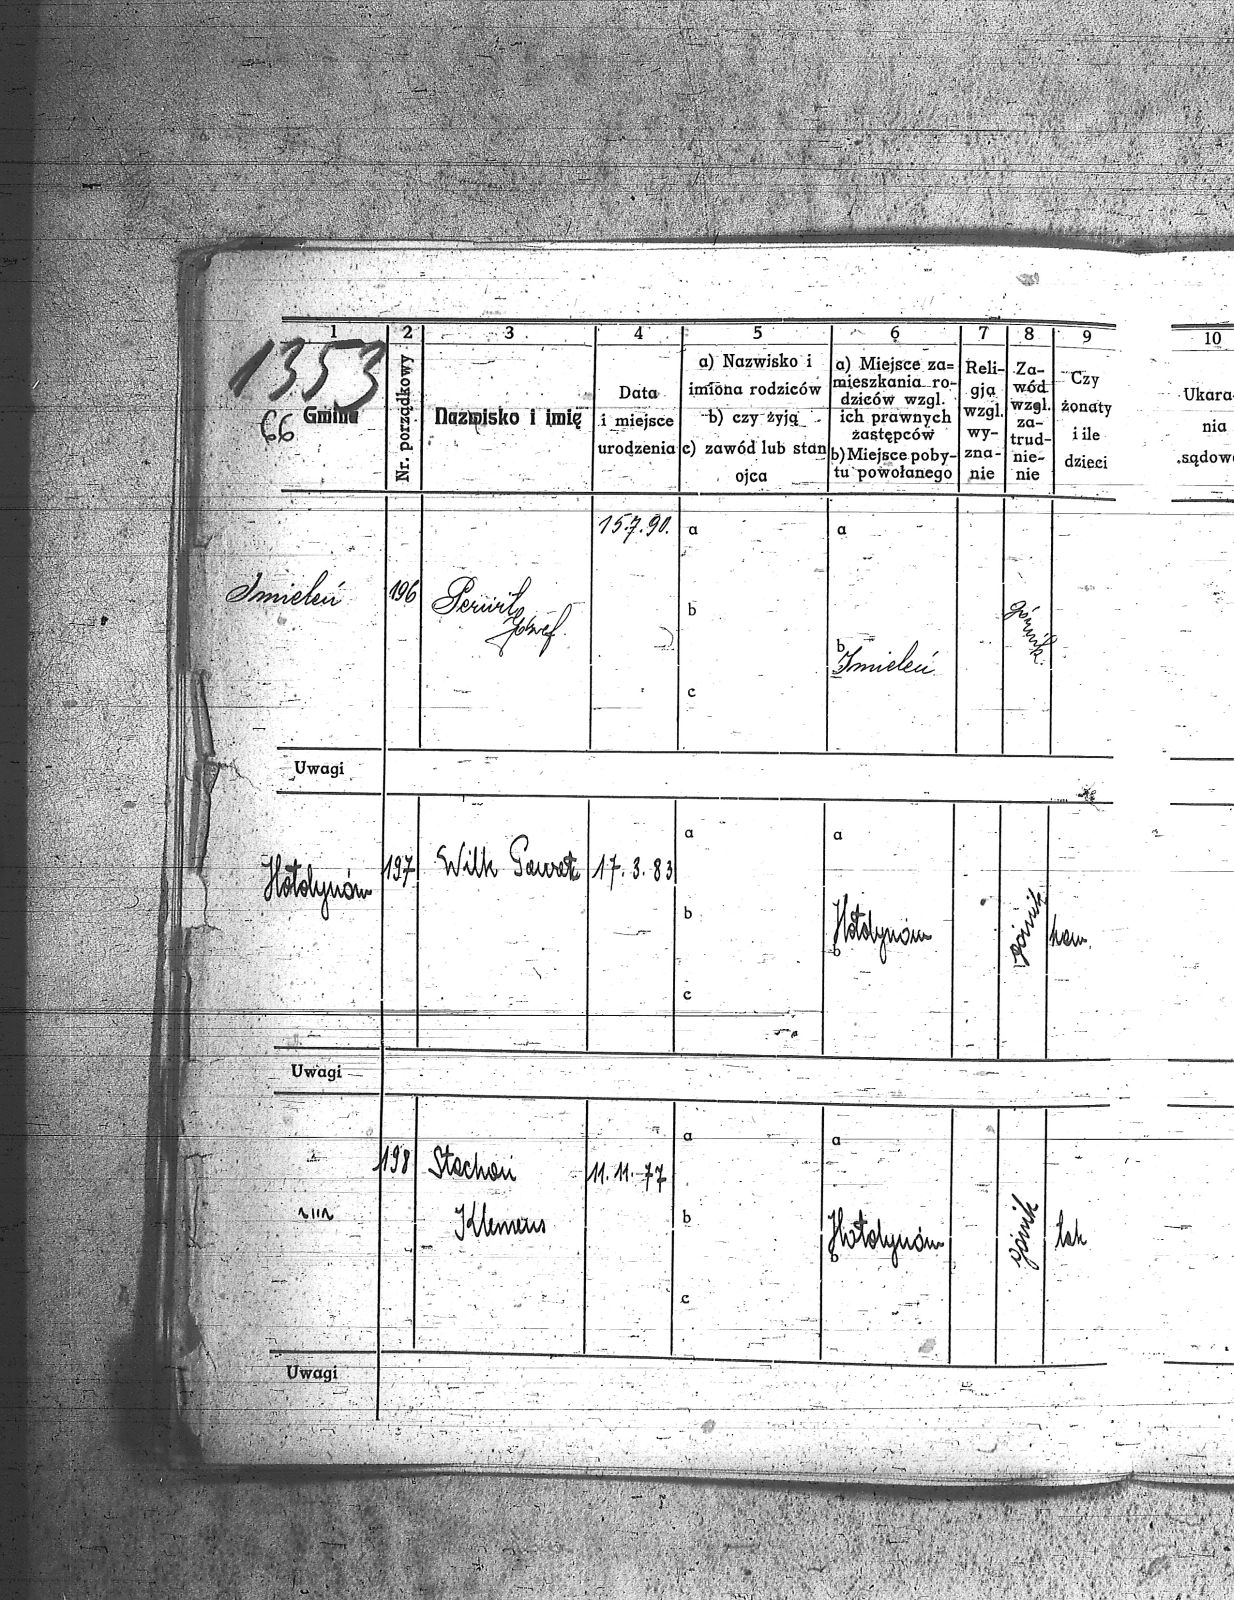 1 2 3 4 5 6 7 8 9 10
1353
66
Gmina
Nr. porządkowy
Nazwisko i imię
Data
i miejsce
urodzenia
a) Nazwisko i
imiona rodziców
b) czy żyją
c) zawód lub stan
ojca
a) Miejsce za=
mieszkania ro-
dziców wzgl.
ich prawnych
zastępców
b) Miejsce poby-
tu powołanego
Reli-
gja
wzgl.
wy-
zna-
nie
Za-
wód
wzgl.
za-
trud-
nie-
nie
Czy
żonaty
i ile
dzieci
Ukara-
nia
sądow
15.7.90. a a
Imieleń 196
Józef górnik
b
b
Imieleń
c
Uwagi
a a
Hołdynów 197 Wilk Paweł 17.3.83
b
Hołdynów górnik kaw.
b
c
Uwagi
a a
198 Stachoń 11.11.77
~"~ Klemens b
Hołdynów górnik tak
b
c
Uwagi